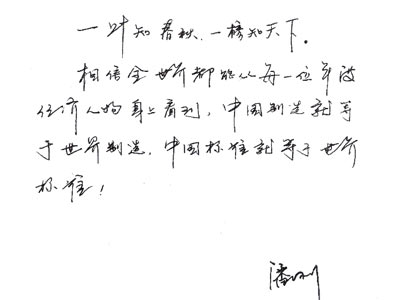 一叶知春秋、一榜知天下。
相信全世界都能从每一位年度
经济人物身上看到，中国制造就等
于世界制造，中国标准就等于世界
标准！
潘刚